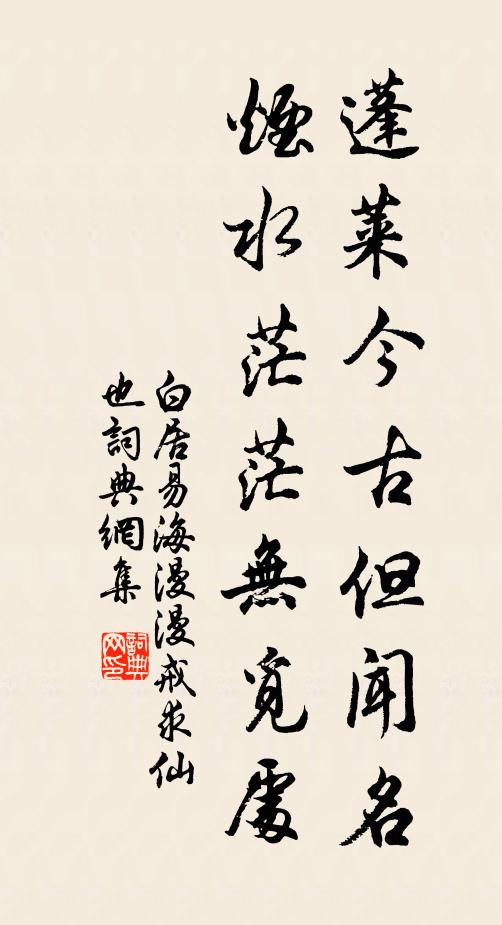 蓬萊今古但聞名
煙水茫茫無覓處
白居易海漫漫戒求仙
也詞典網集
詞典網印